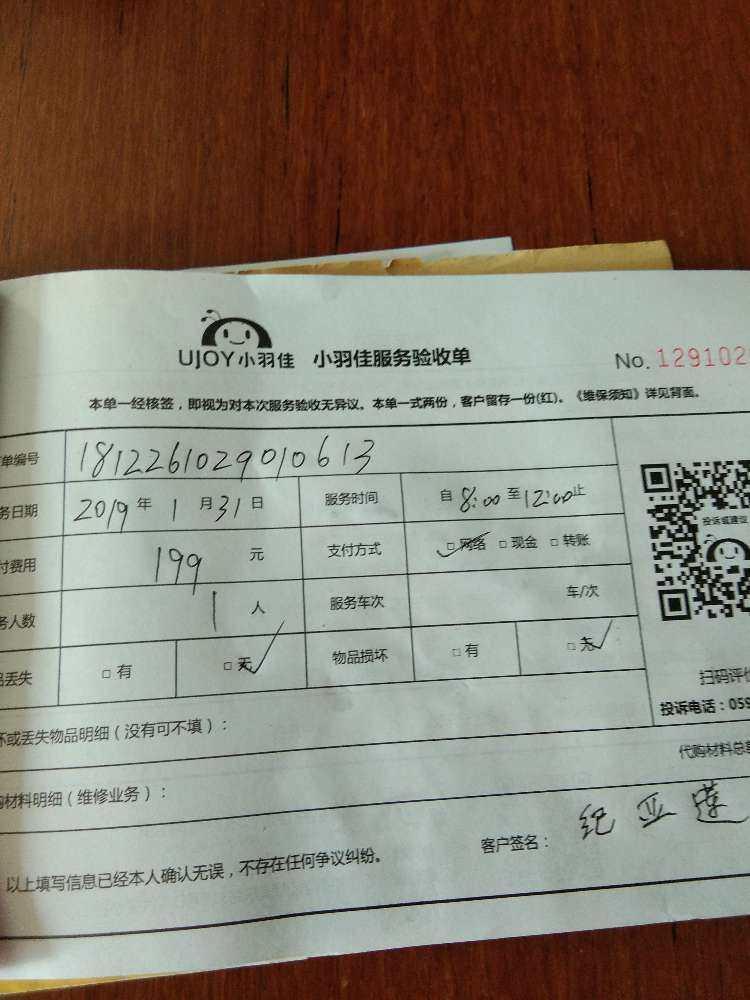 UJOY小羽佳 小羽佳服务验收单 No. 129102
本单一经核签，即视为对本次服务验收无异议。本单一式两份，客户留存一份(红)。《维保须知》详见背面。
单编号 1812261029010613
务日期 2019 年 1 月 31 日 服务时间 自 8:00 至 12:00 止
付费用 199 元 支付方式 □网络 □现金 □转账
务人数 1 人 服务车次 车/次
品丢失 □有 □无 物品损坏 □有 □无
投诉或建议
扫码评价
投诉电话：059
坏或丢失物品明细（没有可不填）：
代购材料总
购材料明细（维修业务）：
以上填写信息已经本人确认无误，不存在任何争议纠纷。 客户签名： 纪亚莲